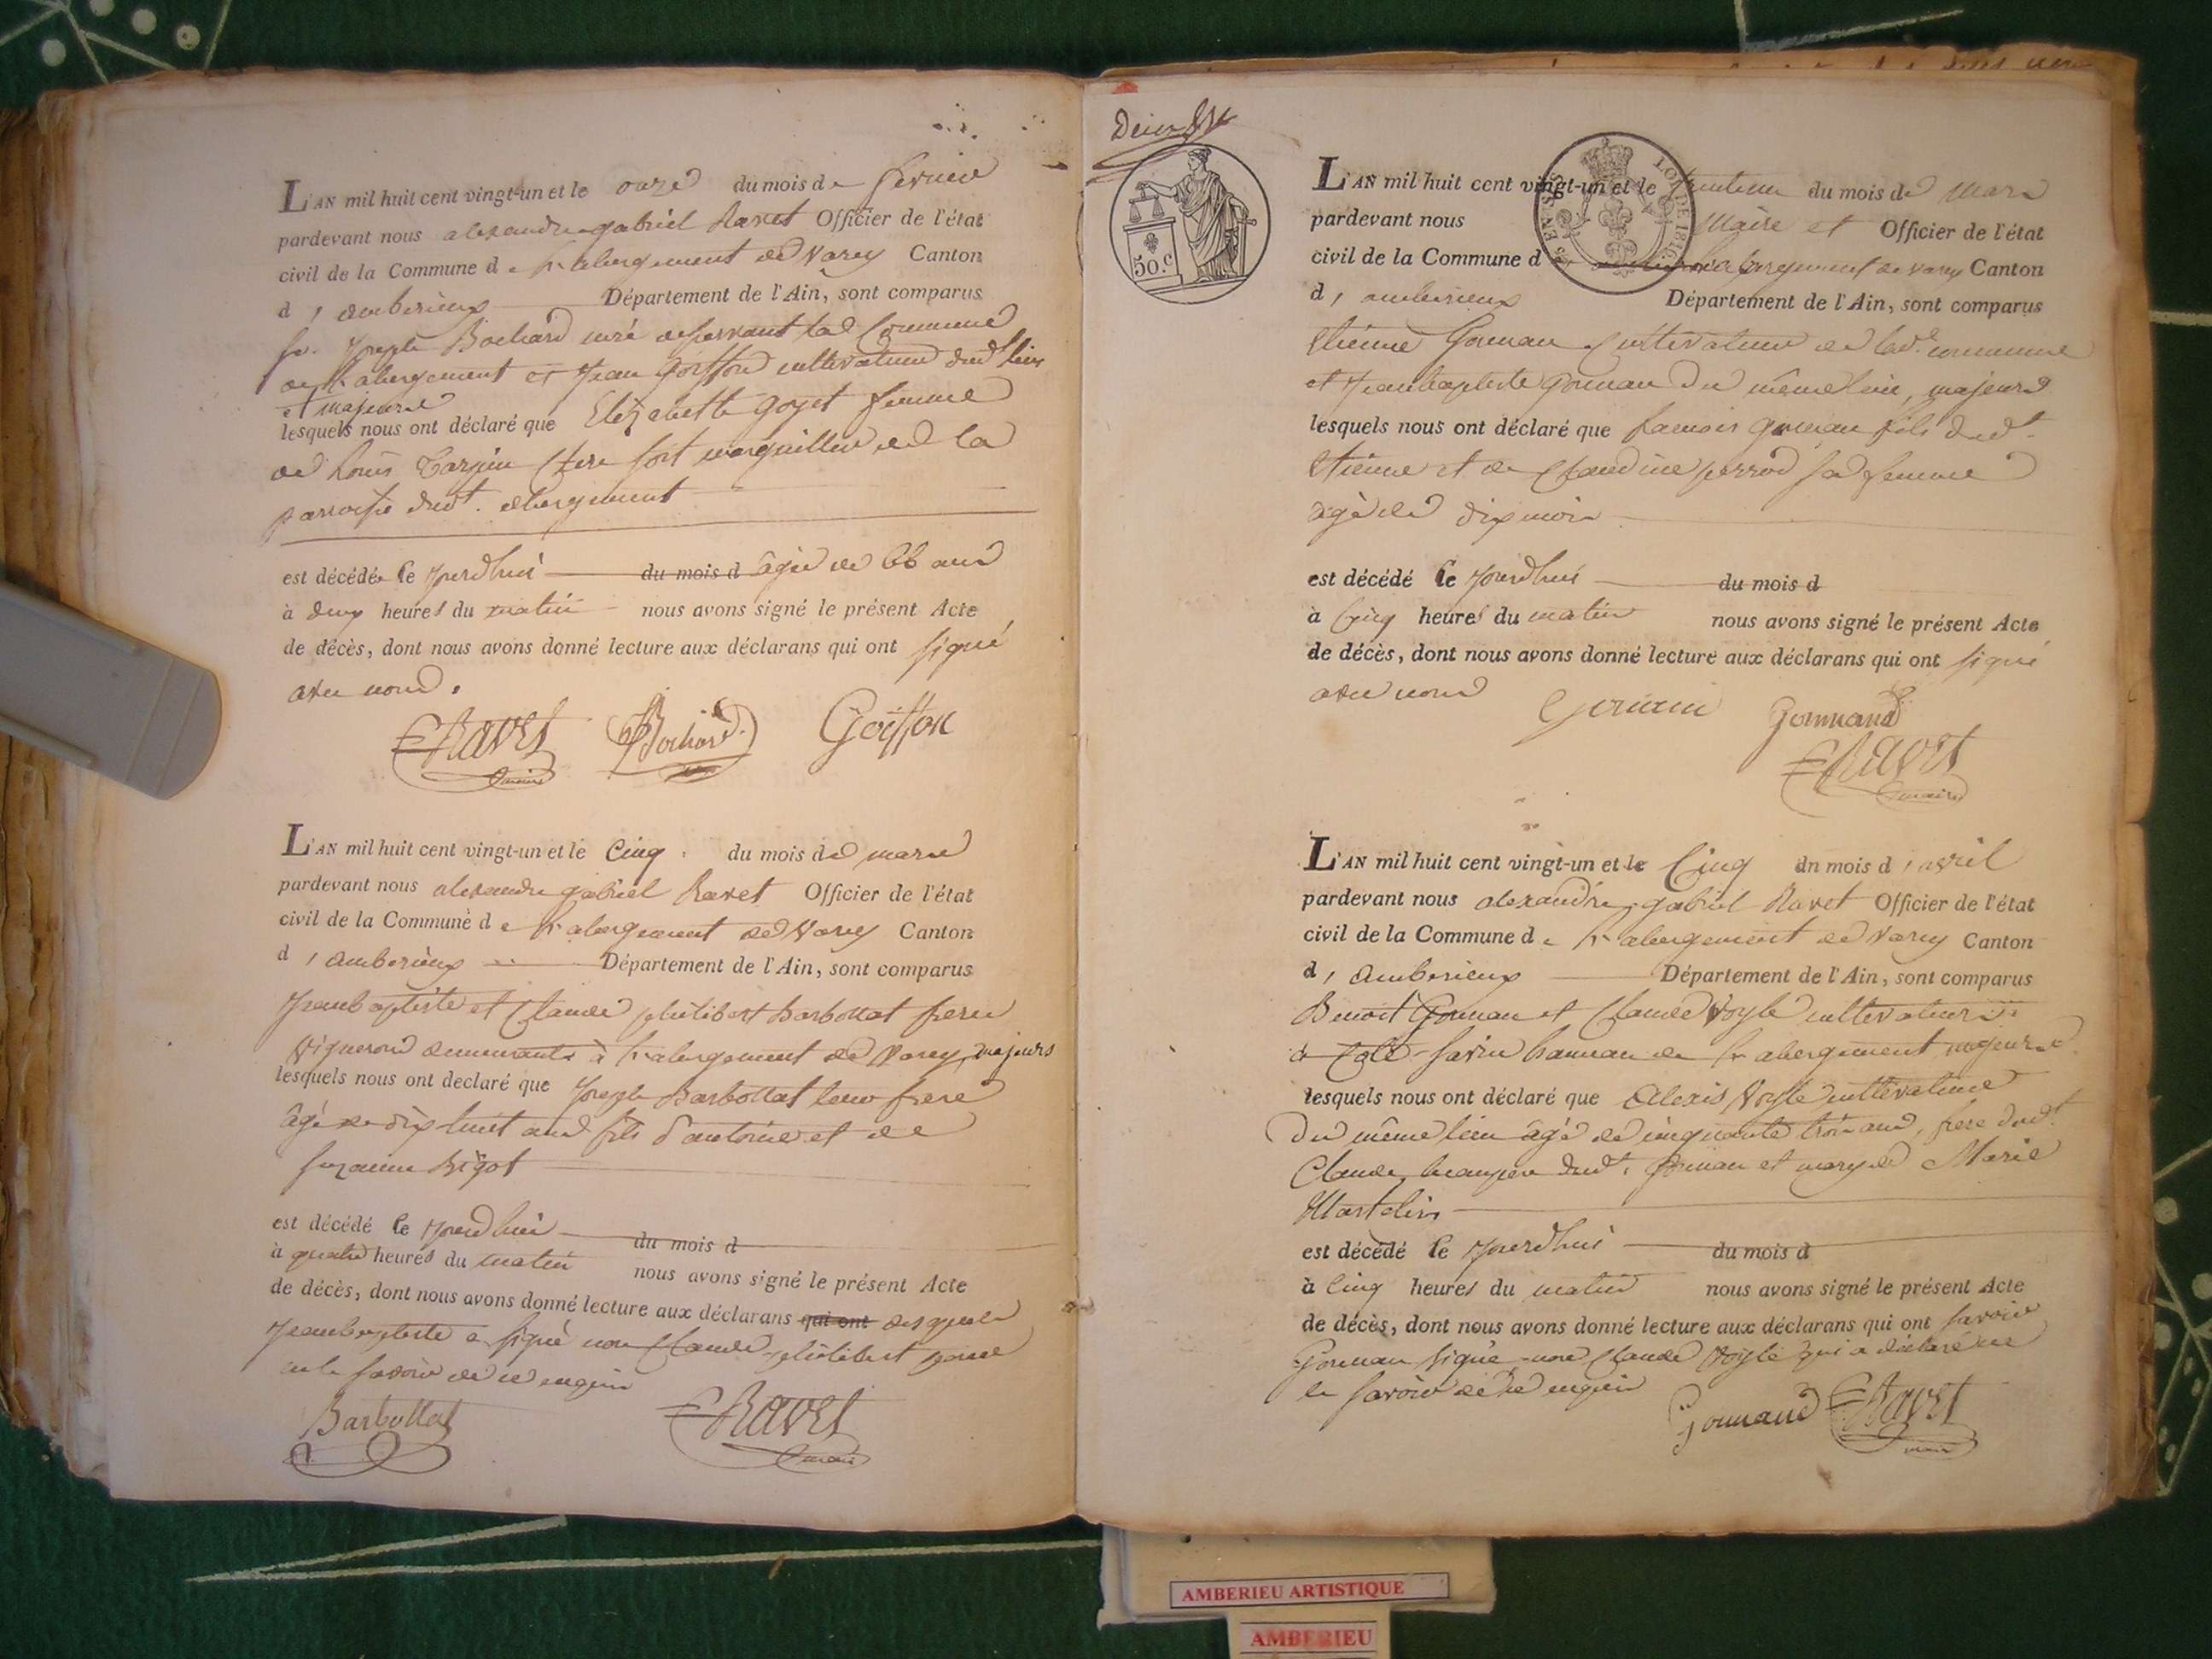 L'AN mil huit cent vingt-un et le onze du mois de fevrier
pardevant nous alexandre gabriel Ravet Officier de l'état
civil de la Commune de St abergement de Varey Canton
d'amberieux Département de l'Ain, sont comparus
Sr. Joseph Bochard curé desservant lad Commune
de St abergement et Jean Goiffon cultivateur dud lieu
et majeurs
lesquels nous ont déclaré que Elizabeth goyet femme
de Louis Tarpin marguillier de la
parroisse dudt. abergement
est décédée le jourdhui du mois d âgée de 66 ans
à deux heures du matin nous avons signé le présent Acte
de décès, dont nous avons donné lecture aux déclarans qui ont signé
avec nous.
Ravet maire Bochard Goiffon
L'AN mil huit cent vingt-un et le Cinq du mois de mars
pardevant nous alexandre gabriel Ravet Officier de l'état
civil de la Commune de St abergement de Varey Canton
d'amberieux Département de l'Ain, sont comparus
Jeanbaptiste et Claude philibert Barbollat freres
Vignerons demeurants à St abergement de Varey, majeurs
lesquels nous ont declaré que Joseph Barbollat leur frere
âgé de dix huit ans fils d'antoine et de
suzanne Bigot
est décédé le jourdhui du mois d
à quatre heures du matin nous avons signé le présent Acte
de décès, dont nous avons donné lecture aux déclarans qui ont desquels
Jeanbaptiste a signé non Claude philibert pour
ne le savoir de ce enquis
Barbollat Ravet maire
50.c
LOI DE 1816
L'AN mil huit cent vingt-un et le du mois de mars
pardevant nous Maire et Officier de l'état
civil de la Commune de St abergement de Varey Canton
d'amberieux Département de l'Ain, sont comparus
Etienne Gonnan Cultivateur de lade. commune
et Jeanbaptiste gonnan du même lieu, majeurs
lesquels nous ont déclaré que francois gonnan fils dudt.
Etienne et de Claudine perrod sa femme
agé de dix mois
est décédé le jourdhui du mois d
à Cinq heures du matin nous avons signé le présent Acte
de décès, dont nous avons donné lecture aux déclarans qui ont signé
avec nous Gonnand
Ravet maire
L'AN mil huit cent vingt-un et le Cinq dn mois d'avril
pardevant nous alexandre gabriel Ravet Officier de l'état
civil de la Commune de St abergement de Varey Canton
d'amberieux Département de l'Ain, sont comparus
Benoit Gonnan et Claude Voyle cultivateurs
à Côte-savin hameau de St abergement majeurs
lesquels nous ont déclaré que Alexis Voyle cultivateur
Du même lieu âgé de cinquante trois ans, frere dudt.
Claude beaupere dudt. gonnan et mary de Marie
Martelin
est décédé le jourdhui du mois d
à Cinq heures du matin nous avons signé le présent Acte
de décès, dont nous avons donné lecture aux déclarans qui ont savoir
Gonnan signé non Claude Voyle qui a déclaré ne
le savoir de ce enquis
Gonnand Ravet maire
AMBERIEU ARTISTIQUE
AMBERIEU